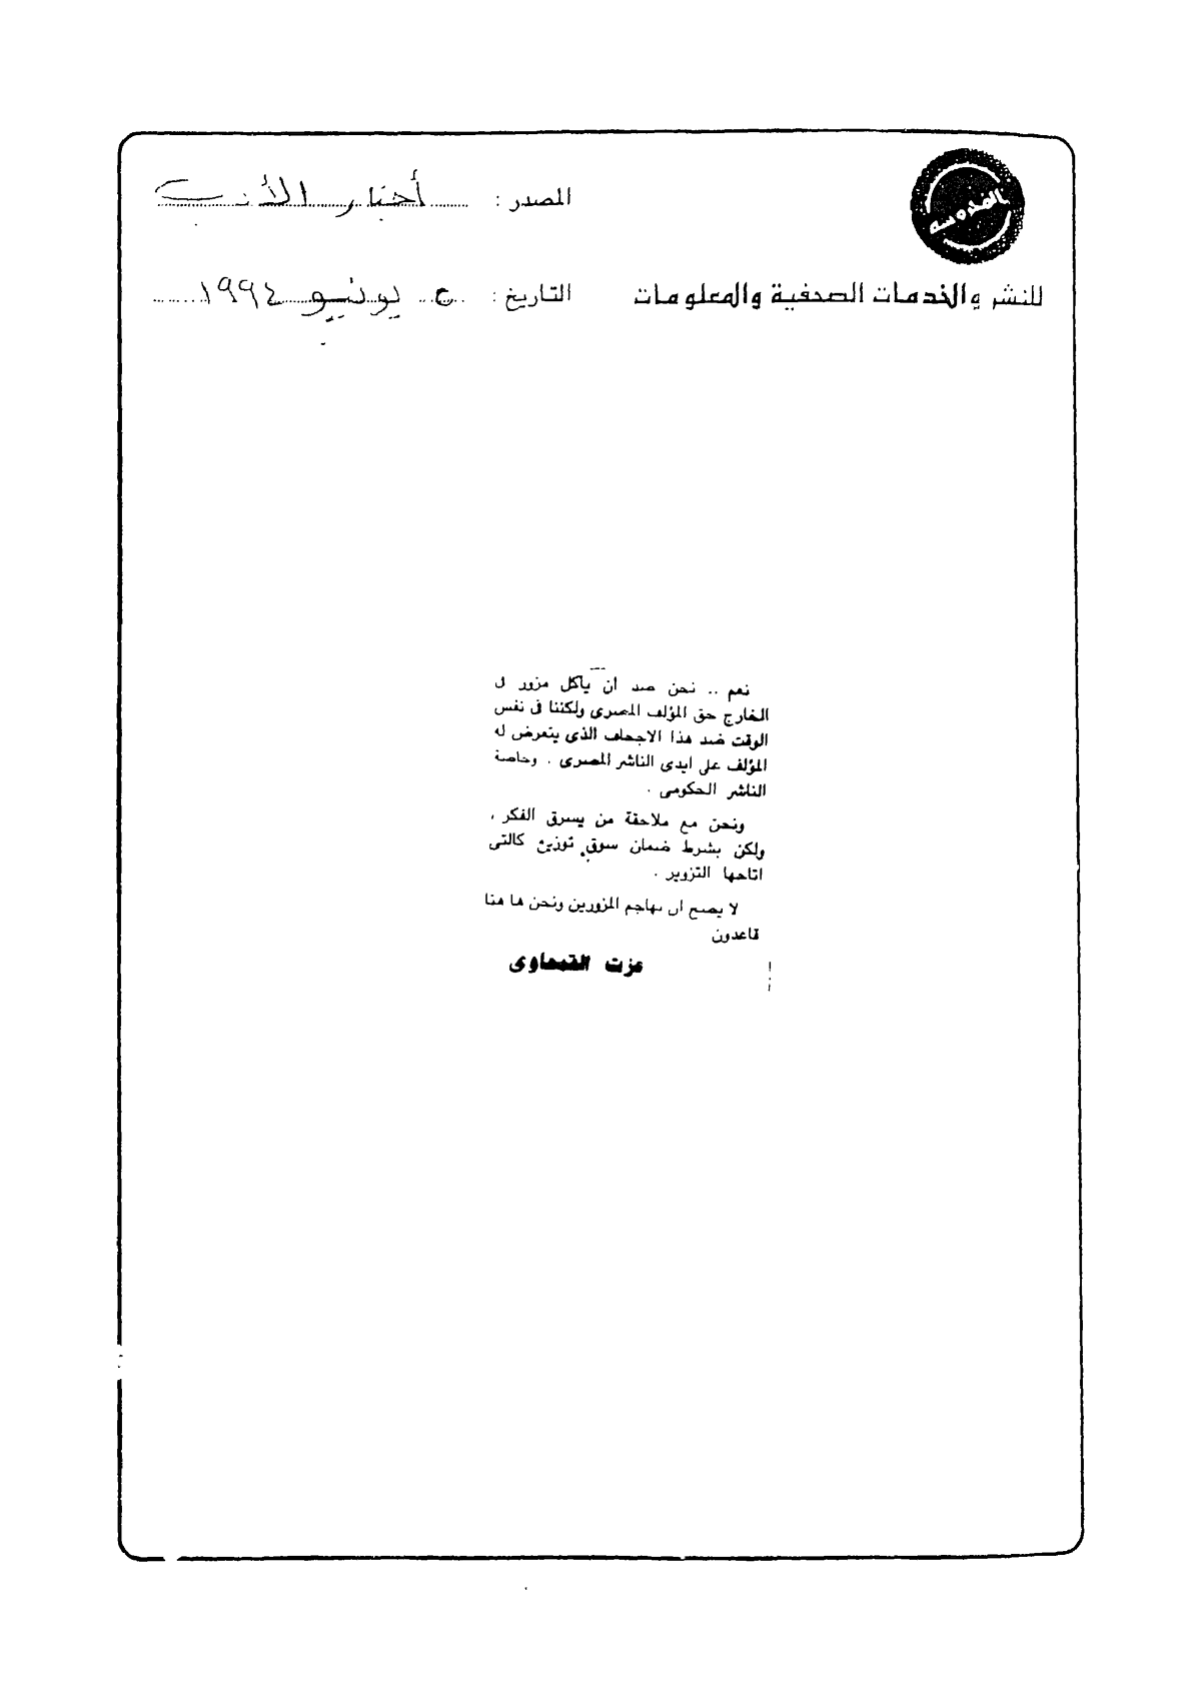 المحروسة
المصدر : أخبار الأدب
للنشر والخدمات الصحفية والمعلومات
التاريخ : ٥ يونيو ١٩٩٤
نعم .. نحن ضد ان ياكل مزور فى
الخارج حق المؤلف المصرى ولكننا فى نفس
الوقت ضد هذا الاجحاف الذى يتعرض له
المؤلف على ايدى الناشر المصرى . وخاصة
الناشر الحكومى .
ونحن مع ملاحقة من يسرق الفكر ،
ولكن بشرط ضمان سوق توزيع كالتى
اتاحها التزوير .
لا يصح ان نهاجم المزورين ونحن ها هنا
قاعدون
عزت القمحاوى